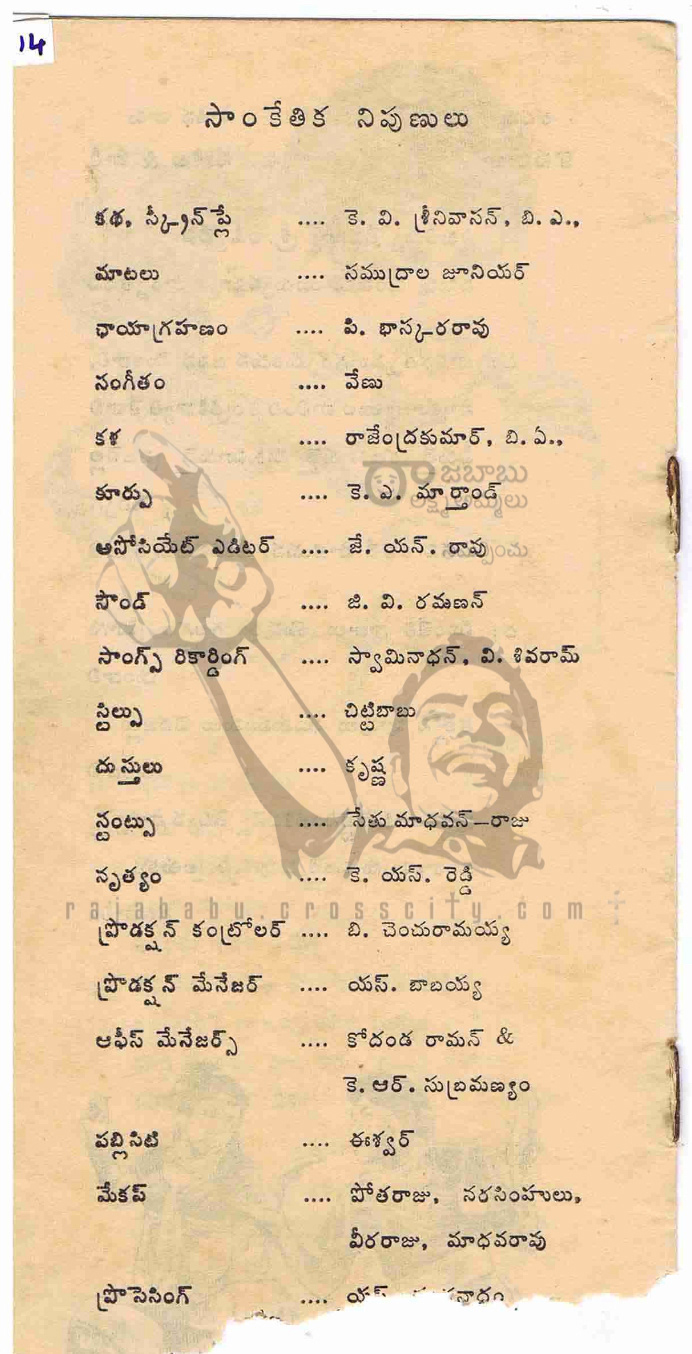 14
సాంకేతిక నిపుణులు
కథ, స్క్రీన్ ప్లే .... కె. వి. శ్రీనివాసన్, బి. ఎ.,
మాటలు .... సముద్రాల జూనియర్
ఛాయాగ్రహణం .... పి. భాస్కరరావు
సంగీతం .... వేణు
కళ .... రాజేంద్రకుమార్, బి. ఏ.,
రాజబాబు
లక్ష్మీఅమ్మలు
కూర్పు .... కె. ఎ. మార్తాండ్
అసోసియేట్ ఎడిటర్ .... జే. యన్. రావు
సౌండ్ .... జి. వి. రమణన్
సాంగ్స్ రికార్డింగ్ .... స్వామినాధన్, వి. శివరామ్
స్టిల్సు .... చిట్టిబాబు
దుస్తులు .... కృష్ణ
స్టంట్సు .... సేతు మాధవన్—రాజు
నృత్యం .... కె. యస్. రెడ్డి
rajababu.crosscity.com
ప్రొడక్షన్ కంట్రోలర్ .... బి. చెంచురామయ్య
ప్రొడక్షన్ మేనేజర్ .... యస్. బాబయ్య
ఆఫీస్ మేనేజర్స్ .... కోదండ రామన్ &
కె. ఆర్. సుబ్రమణ్యం
పబ్లిసిటి .... ఈశ్వర్
మేకప్ .... పోతరాజు, నరసింహులు,
వీరరాజు, మాధవరావు
ప్రొసెసింగ్ ....